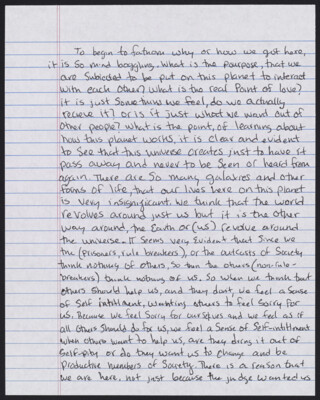 To begin to fathom why or how we got here,
it is so mind boggling. What is the pourpose, that we
are subjected to be put on this planet to interact
with each other? What is the real point of love?
it is just something we feel, do we actually
recieve it? or is it just what we want out of
other people? What is the point, of learning about
how this planet works, it is clear and evident
to see that this universe creates just to have it
pass away and never to be seen or heard from
again. There are so many galaxies and other
forms of life, that our lives here on this planet
is very insignificant. We think that the world
revolves around just us but it is the other
way around, the Earth or (us) revolve around
the universe. It seems very evident that since we
the (prisoners, rule breakers), or the outcasts of Society
think nothing of others, so then the others (non-rule-
breakers) think nothing of us. So when we think that
others should help us, and they don't, we feel a sense
of self intitlment, wanting others to feel sorry for
us. Because we feel sorry for ourselves and we feel as if
all others should do for us, we feel a sense of self-intitlment
when others want to help us, are they doing it out of
self-pity or do they want us to change and be
productive members of Society. There is a reason that
we are here, not just because the judge wanted us